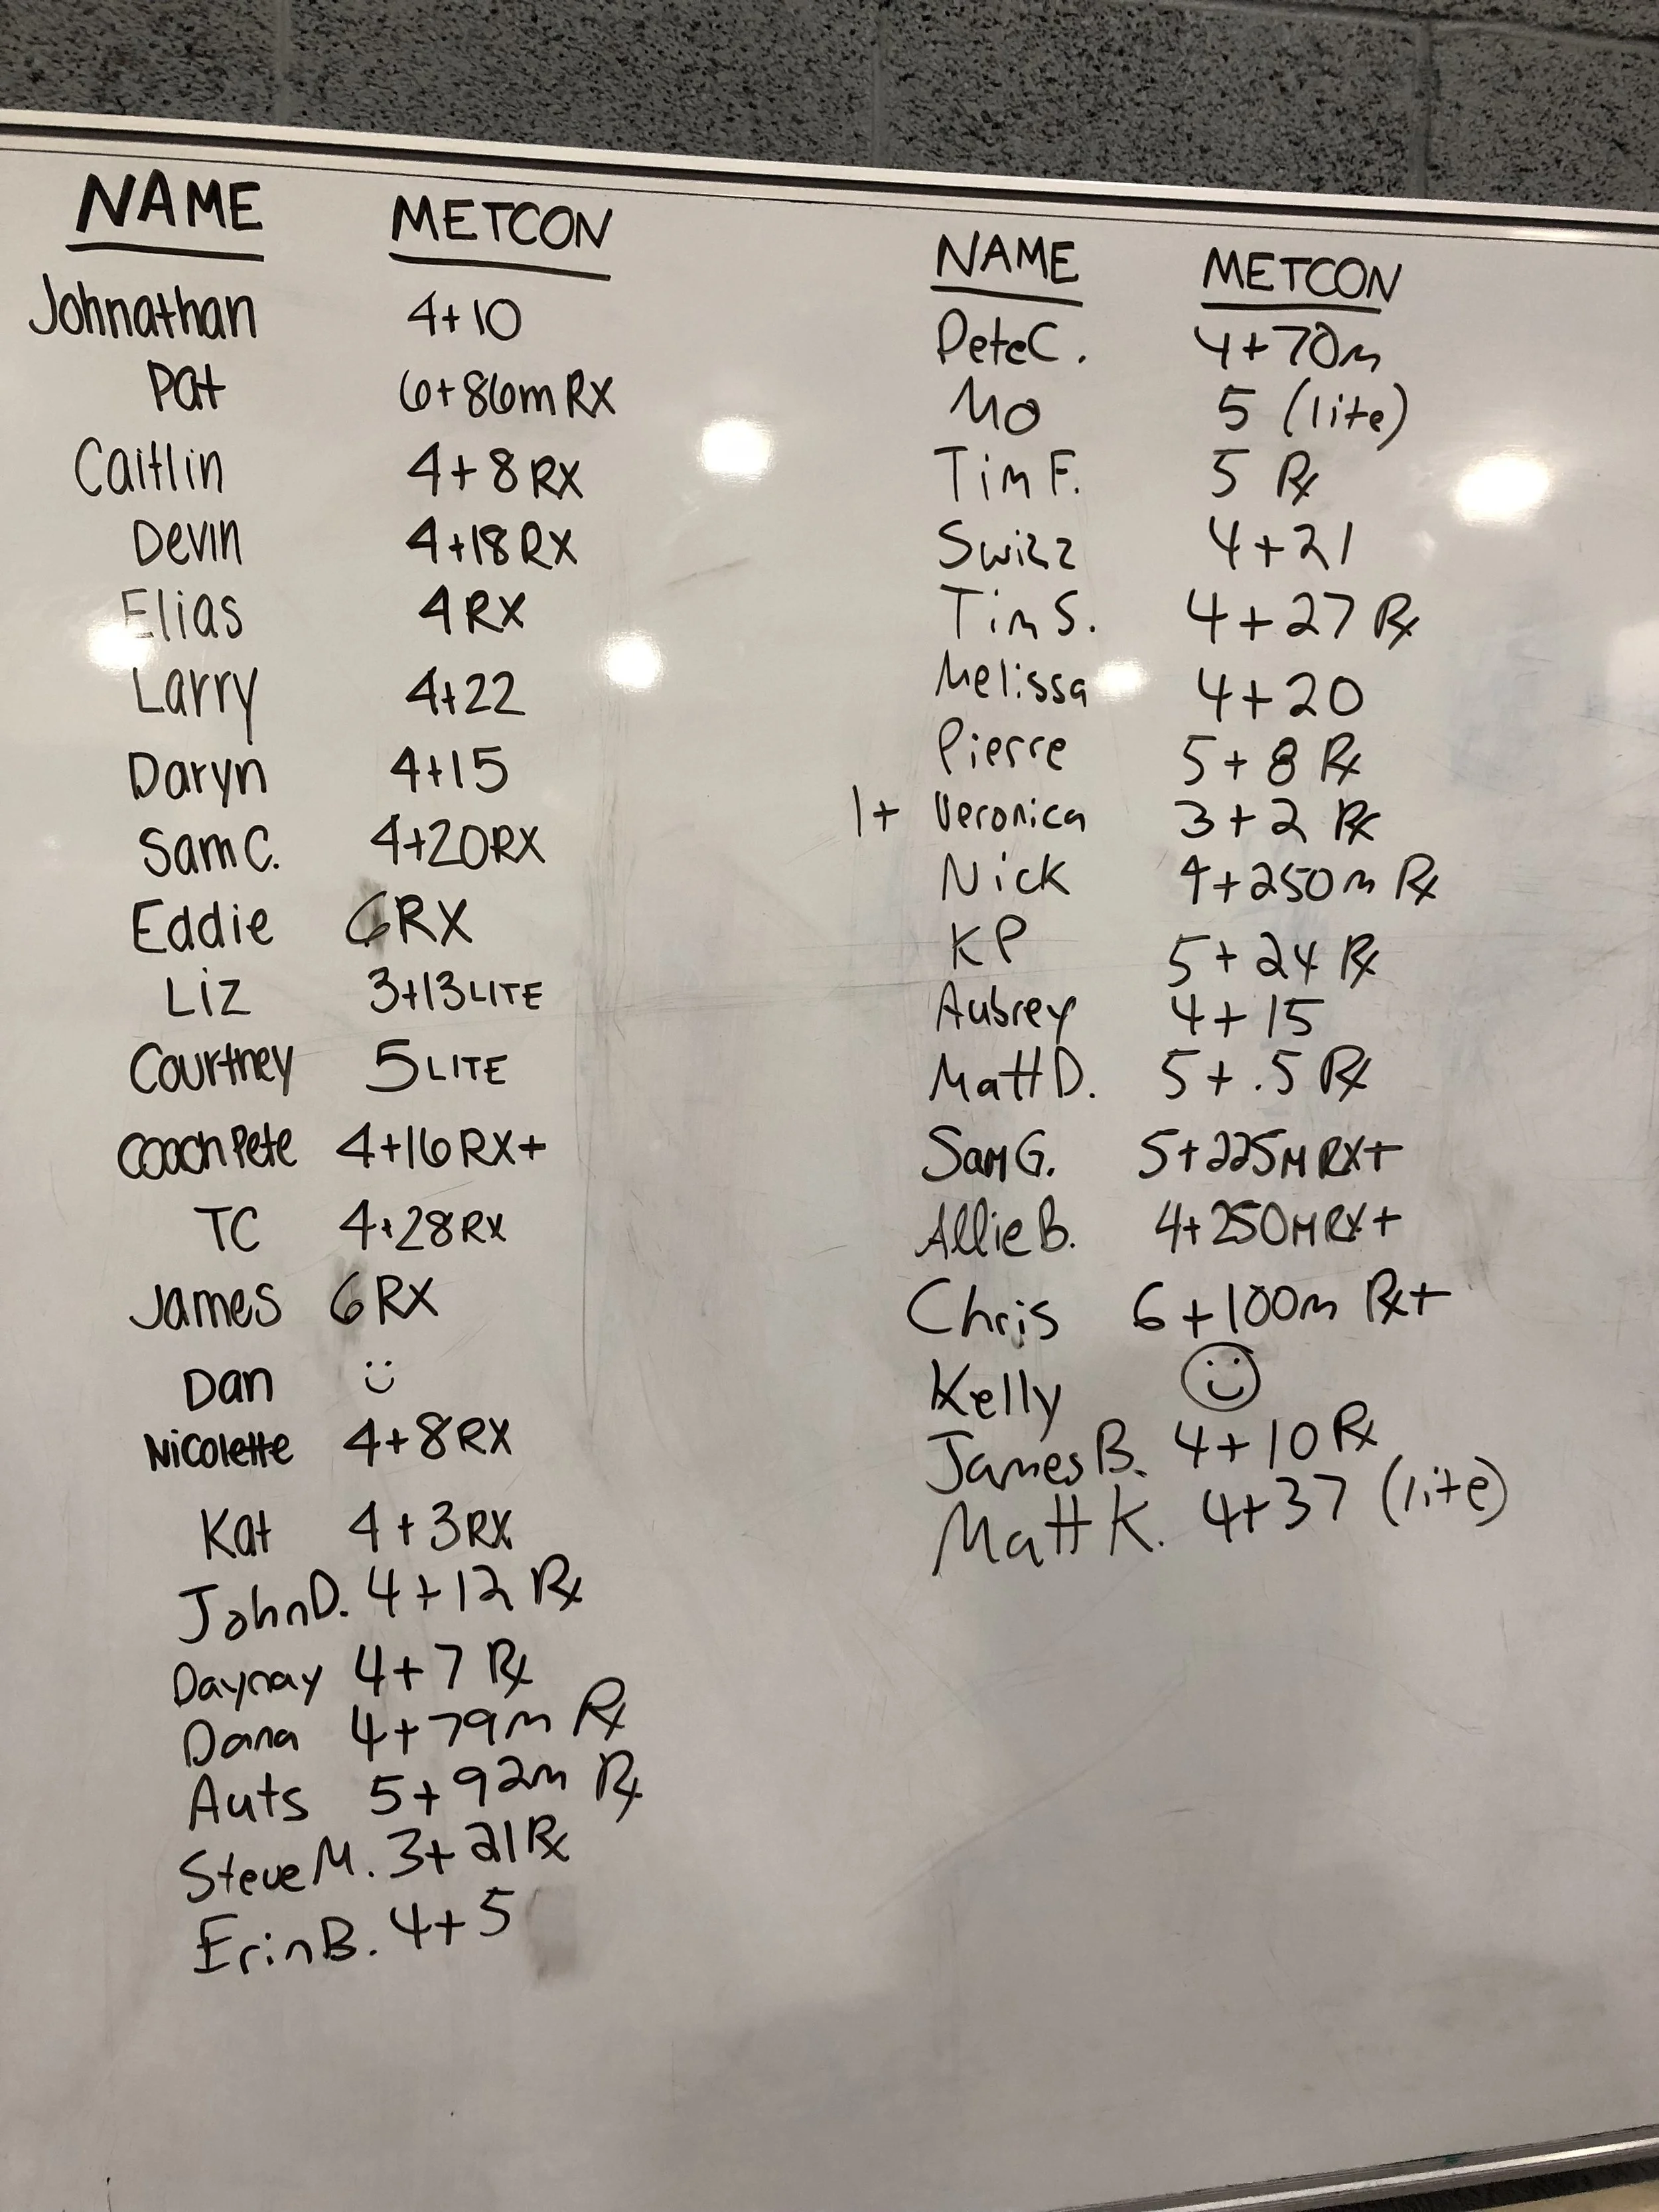 NAME METCON
Johnathan 4+10
Pat 6+86m RX
Caitlin 4+8 RX
Devin 4+18 RX
Elias 4 RX
Larry 4+22
Daryn 4+15
Sam C. 4+20 RX
Eddie 6 RX
Liz 3+13 LITE
Courtney 5 LITE
Coach Pete 4+16 RX+
TC 4+28 RX
James 6 RX
Dan :)
Nicolette 4+8 RX
Kat 4+3 RX
John D. 4+12 Rx
Daynay 4+7 Rx
Dana 4+79m Rx
Auts 5+92m Rx
Steve M. 3+21 Rx
Erin B. 4+5
NAME METCON
Pete C. 4+70m
Mo 5 (lite)
Tim F. 5 Rx
Swizz 4+21
Tim S. 4+27 Rx
Melissa 4+20
Pierre 5+8 Rx
1+ Veronica 3+2 Rx
Nick 4+250m Rx
KP 5+24 Rx
Aubrey 4+15
Matt D. 5+.5 Rx
Sam G. 5+225M RX+
Allie B. 4+250M RX+
Chris 6+100m Rx+
Kelly ☺
James B. 4+10 Rx
Matt K. 4+37 (lite)